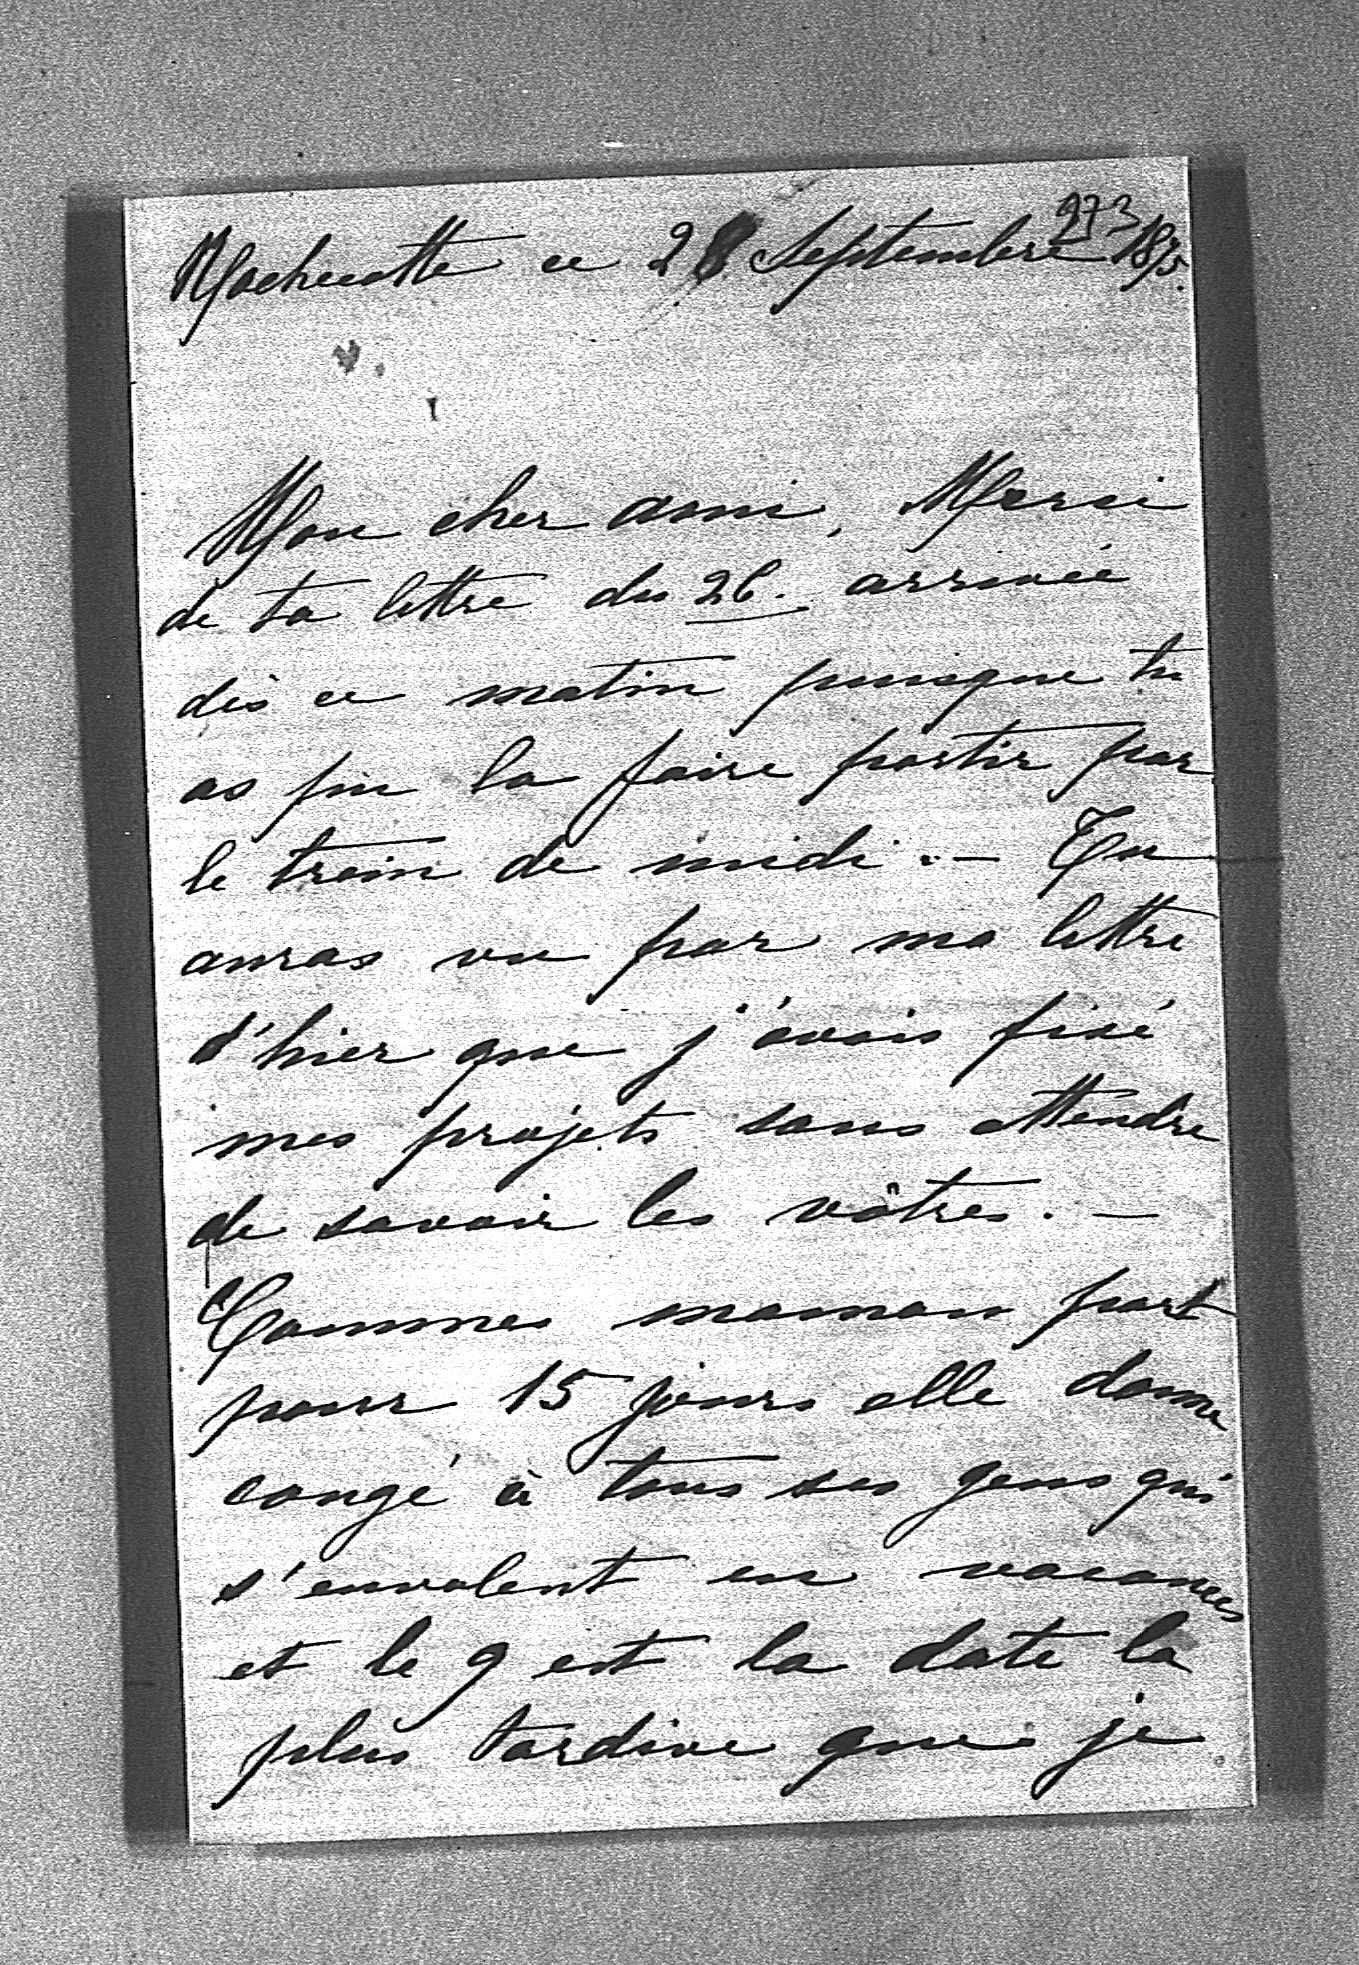 273
Rochecotte ce 28 Septembre 1875.
Mon cher ami, Merci
de ta lettre du 26. arrivée
dès ce matin puisque tu
as pu la faire partir par
le train de midi. — Tu
auras vu par ma lettre
d'hier que j'avais fixé
mes projets sans attendre
de savoir les vôtres. —
Comme maman part
pour 15 jours elle donne
congé à tous ses gens qui
s'envolent en vacances
et le 9 est la date la
plus tardive que je